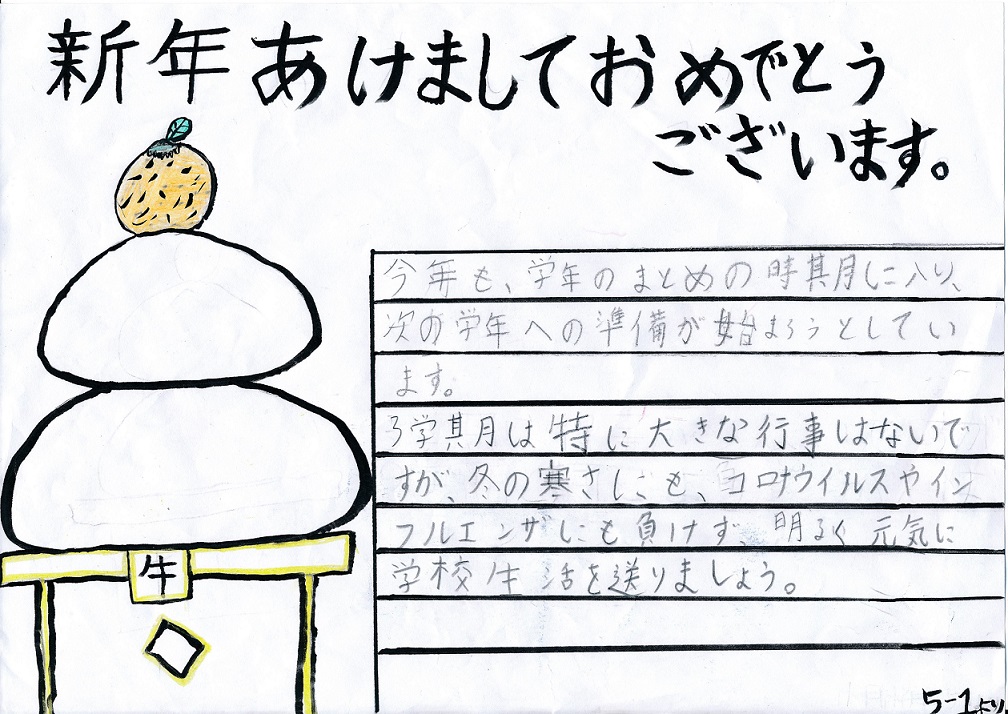 新年あけましておめでとう
ございます。
今年も、学年のまとめの時期に入り、
次の学年への準備が始まろうとしてい
ます。
3学期は特に大きな行事はないで
すが、冬の寒さにも、コロナウイルスやイン
フルエンザにも負けず、明るく元気に
学校生活を送りましょう。
牛
5-1より